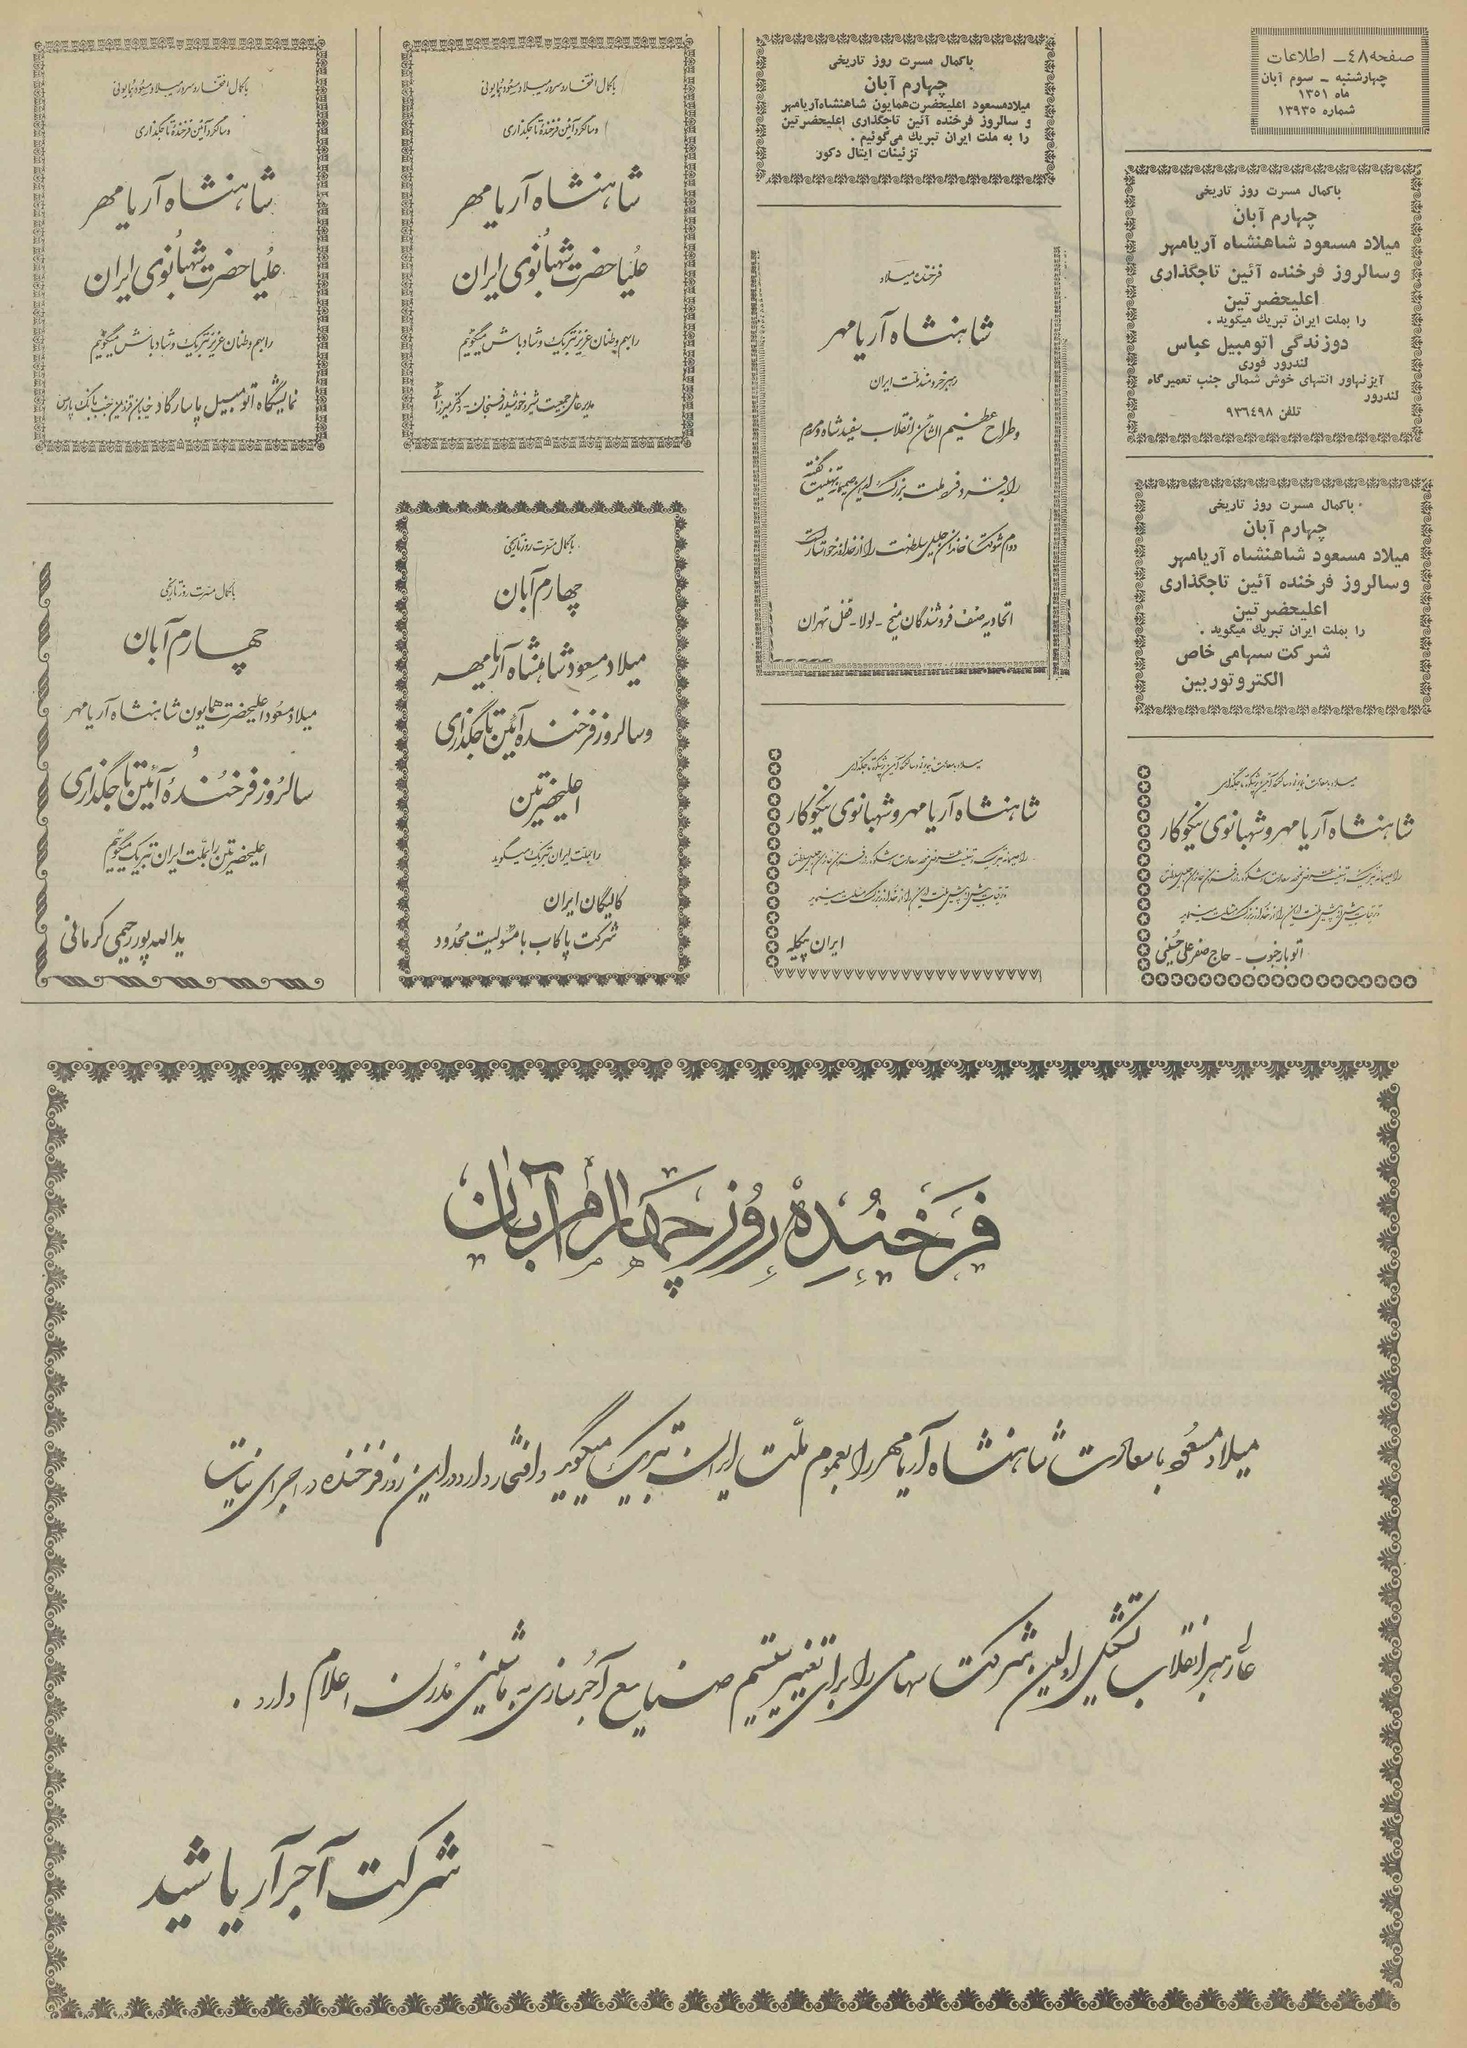 صفحه ٤٨ـ اطلاعات
چهارشنبه ـ سوم آبان
ماه ١٣٥١
شماره ١٣٩٣٥
باکمال مسرت روز تاریخی
چهارم آبان
میلاد مسعود شاهنشاه آریامهر
وسالروز فرخنده آئین تاجگذاری
اعلیحضرتین
را بملت ایران تبریك میگوید .
دوزندگی اتومبیل عباس
لندرور فوری
آیزنهاور انتهای خوش شمالی جنب تعمیرگاه
لندرور
تلفن ٩٣٦٤٩٨
باکمال مسرت روز تاریخی
چهارم آبان
میلاد مسعود شاهنشاه آریامهر
وسالروز فرخنده آئین تاجگذاری
اعلیحضرتین
را بملت ایران تبریك میگوید .
شرکت سهامی خاص
الکتروتوربین
شاهنشاه آریامهر و شهبانوی نیکوکار
اتوبار خوب ـ حاج صفرعلی حسینی
باکمال مسرت روز تاریخی
چهارم آبان
میلادمسعود اعلیحضرت‌همایون شاهنشاه‌آریامهر
و سالروز فرخنده آئین تاجگذاری اعلیحضرتین
را به ملت ایران تبریك می‌گوئیم .
تزئینات ایتال دکور
فرخنده میلاد
شاهنشاه آریامهر
رهبر خردمند ملت ایران
و طراح عظیم الشأن انقلاب سفید شاه و مردم
اتحادیه صنف فروشندگان میخ ـ لولا ـ قفل تهران
شاهنشاه آریامهر و شهبانوی نیکوکار
ایران پیکیله
باکمال افتخار و سرور میلاد مسعود همایونی
و سالگرد آئین فرخندهٔ تاجگذاری
شاهنشاه آریامهر
علیاحضرت شهبانوی ایران
را بهم وطنان عزیز تبریک و شاد باش میگوئیم
مدیر عامل جمعیت شیر و خورشید رفسنجان ـ دکتر میرزائی
باکمال مسرت روز تاریخی
چهارم آبان
میلاد مسعود شاهنشاه آریامهر
و سالروز فرخنده آئین تاجگذاری
اعلیحضرتین
را بملت ایران تبریک میگوید
کالیگان ایران
شرکت پاکاب با مسئولیت محدود
باکمال افتخار و سرور میلاد مسعود همایونی
و سالگرد آئین فرخندهٔ تاجگذاری
شاهنشاه آریامهر
علیاحضرت شهبانوی ایران
را بهم وطنان عزیز تبریک و شاد باش میگوئیم
نمایشگاه اتومبیل پاسارگاد خیابان قزوین جنب بانک پارس
باکمال مسرت روز تاریخی
چهارم آبان
میلاد مسعود اعلیحضرت همایون شاهنشاه آریامهر
و
سالروز فرخندهٔ آئین تاجگذاری
اعلیحضرتین را بملت ایران تبریک میگوئیم
یدالله پور رحیمی کرمانی
فرخنده روز چهارم آبان
میلاد مسعود با سعادت شاهنشاه آریامهر را بعموم ملت ایران تبریک میگوید و افتخار دارد در این روز فرخنده در اجرای نیات
عالیه رهبر انقلاب تشکیل اولین شرکت سهامی را برای تغییر سیستم صنایع آجرسازی به ماشینی مدرن اعلام دارد .
شرکت آجر آریا شید